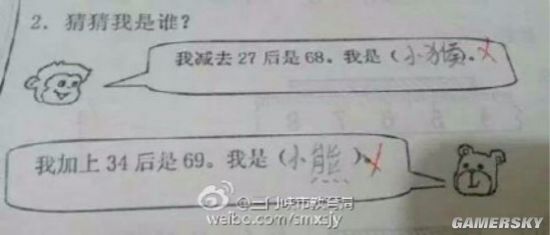 2. 猜猜我是谁?
我减去 27 后是 68。我是(小猴)。
我加上 34 后是 69。我是(小熊)。
三门峡市教育局
weibo.com/smxsjy
GAMERSKY